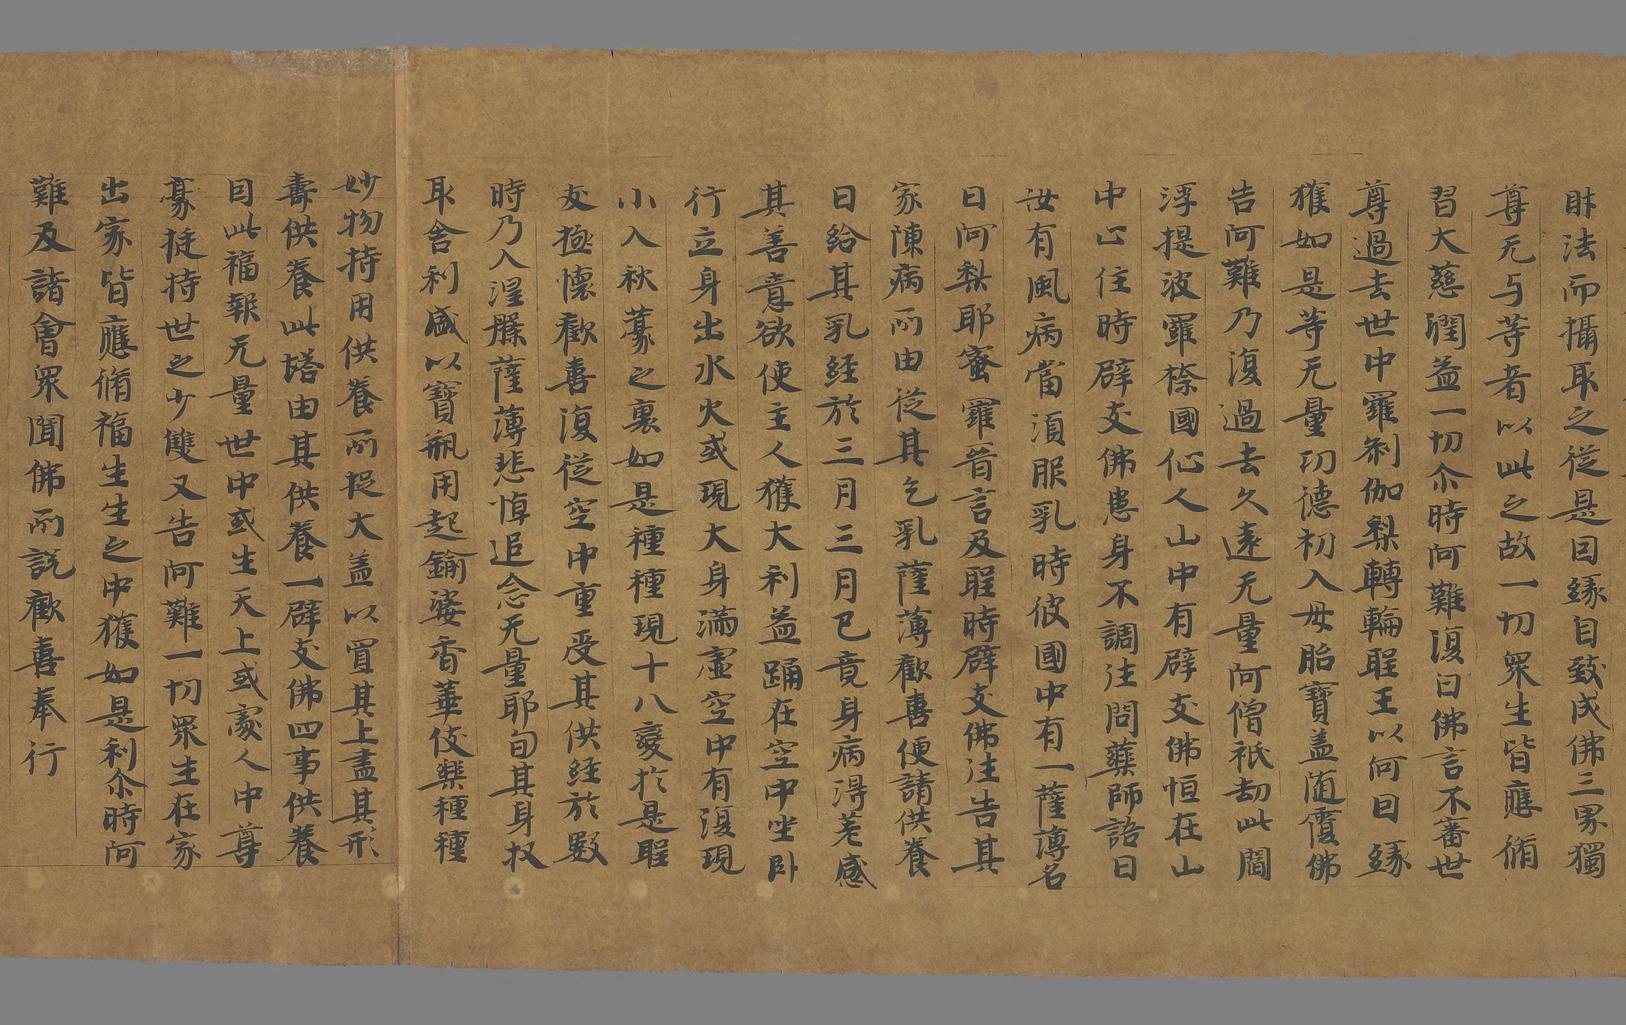 財法而攝取之從是因緣自致成佛三界獨
尊无与等者以此之故一切眾生皆應脩
習大慈潤益一切尒時阿難復白佛言不審世
尊過去世中羅刹伽梨轉輪聖王以何因緣
獲如是等无量功德初入母胎寶盖随覆佛
告阿難乃復過去久遠无量阿僧祇劫此閻
浮提波羅㮈國仙人山中有辟支佛恒在山
中心住時辟支佛患身不調注問藥師語曰
汝有風病當須服乳時彼國中有一薩薄名
曰阿梨耶蜜羅晉言及聖時辟支佛注告其
家陳病所由從其乞乳薩薄歡喜便請供養
日給其乳經於三月三月已竟身病得差感
其善意欲使主人獲大利益踊在空中坐卧
行立身出水火或現大身滿虛空中有復現
小入秋豪之裏如是種種現十八變於是聖
友極懷歡喜復從空中重受其供經於數
時乃入涅槃薩薄悲悼追念无量耶旬其身収
取舍利盛以寶瓶用起鍮婆香華伎樂種種
妙物持用供養所捉大盖以冒其上盡其形
壽供養此塔由其供養一辟支佛四事供養
因此福報无量世中或生天上或處人中尊
豪挺持世之少雙又告阿難一切眾生在家
出家皆應脩福生生之中獲如是利尒時阿
難及諸會眾聞佛所說歡喜奉行